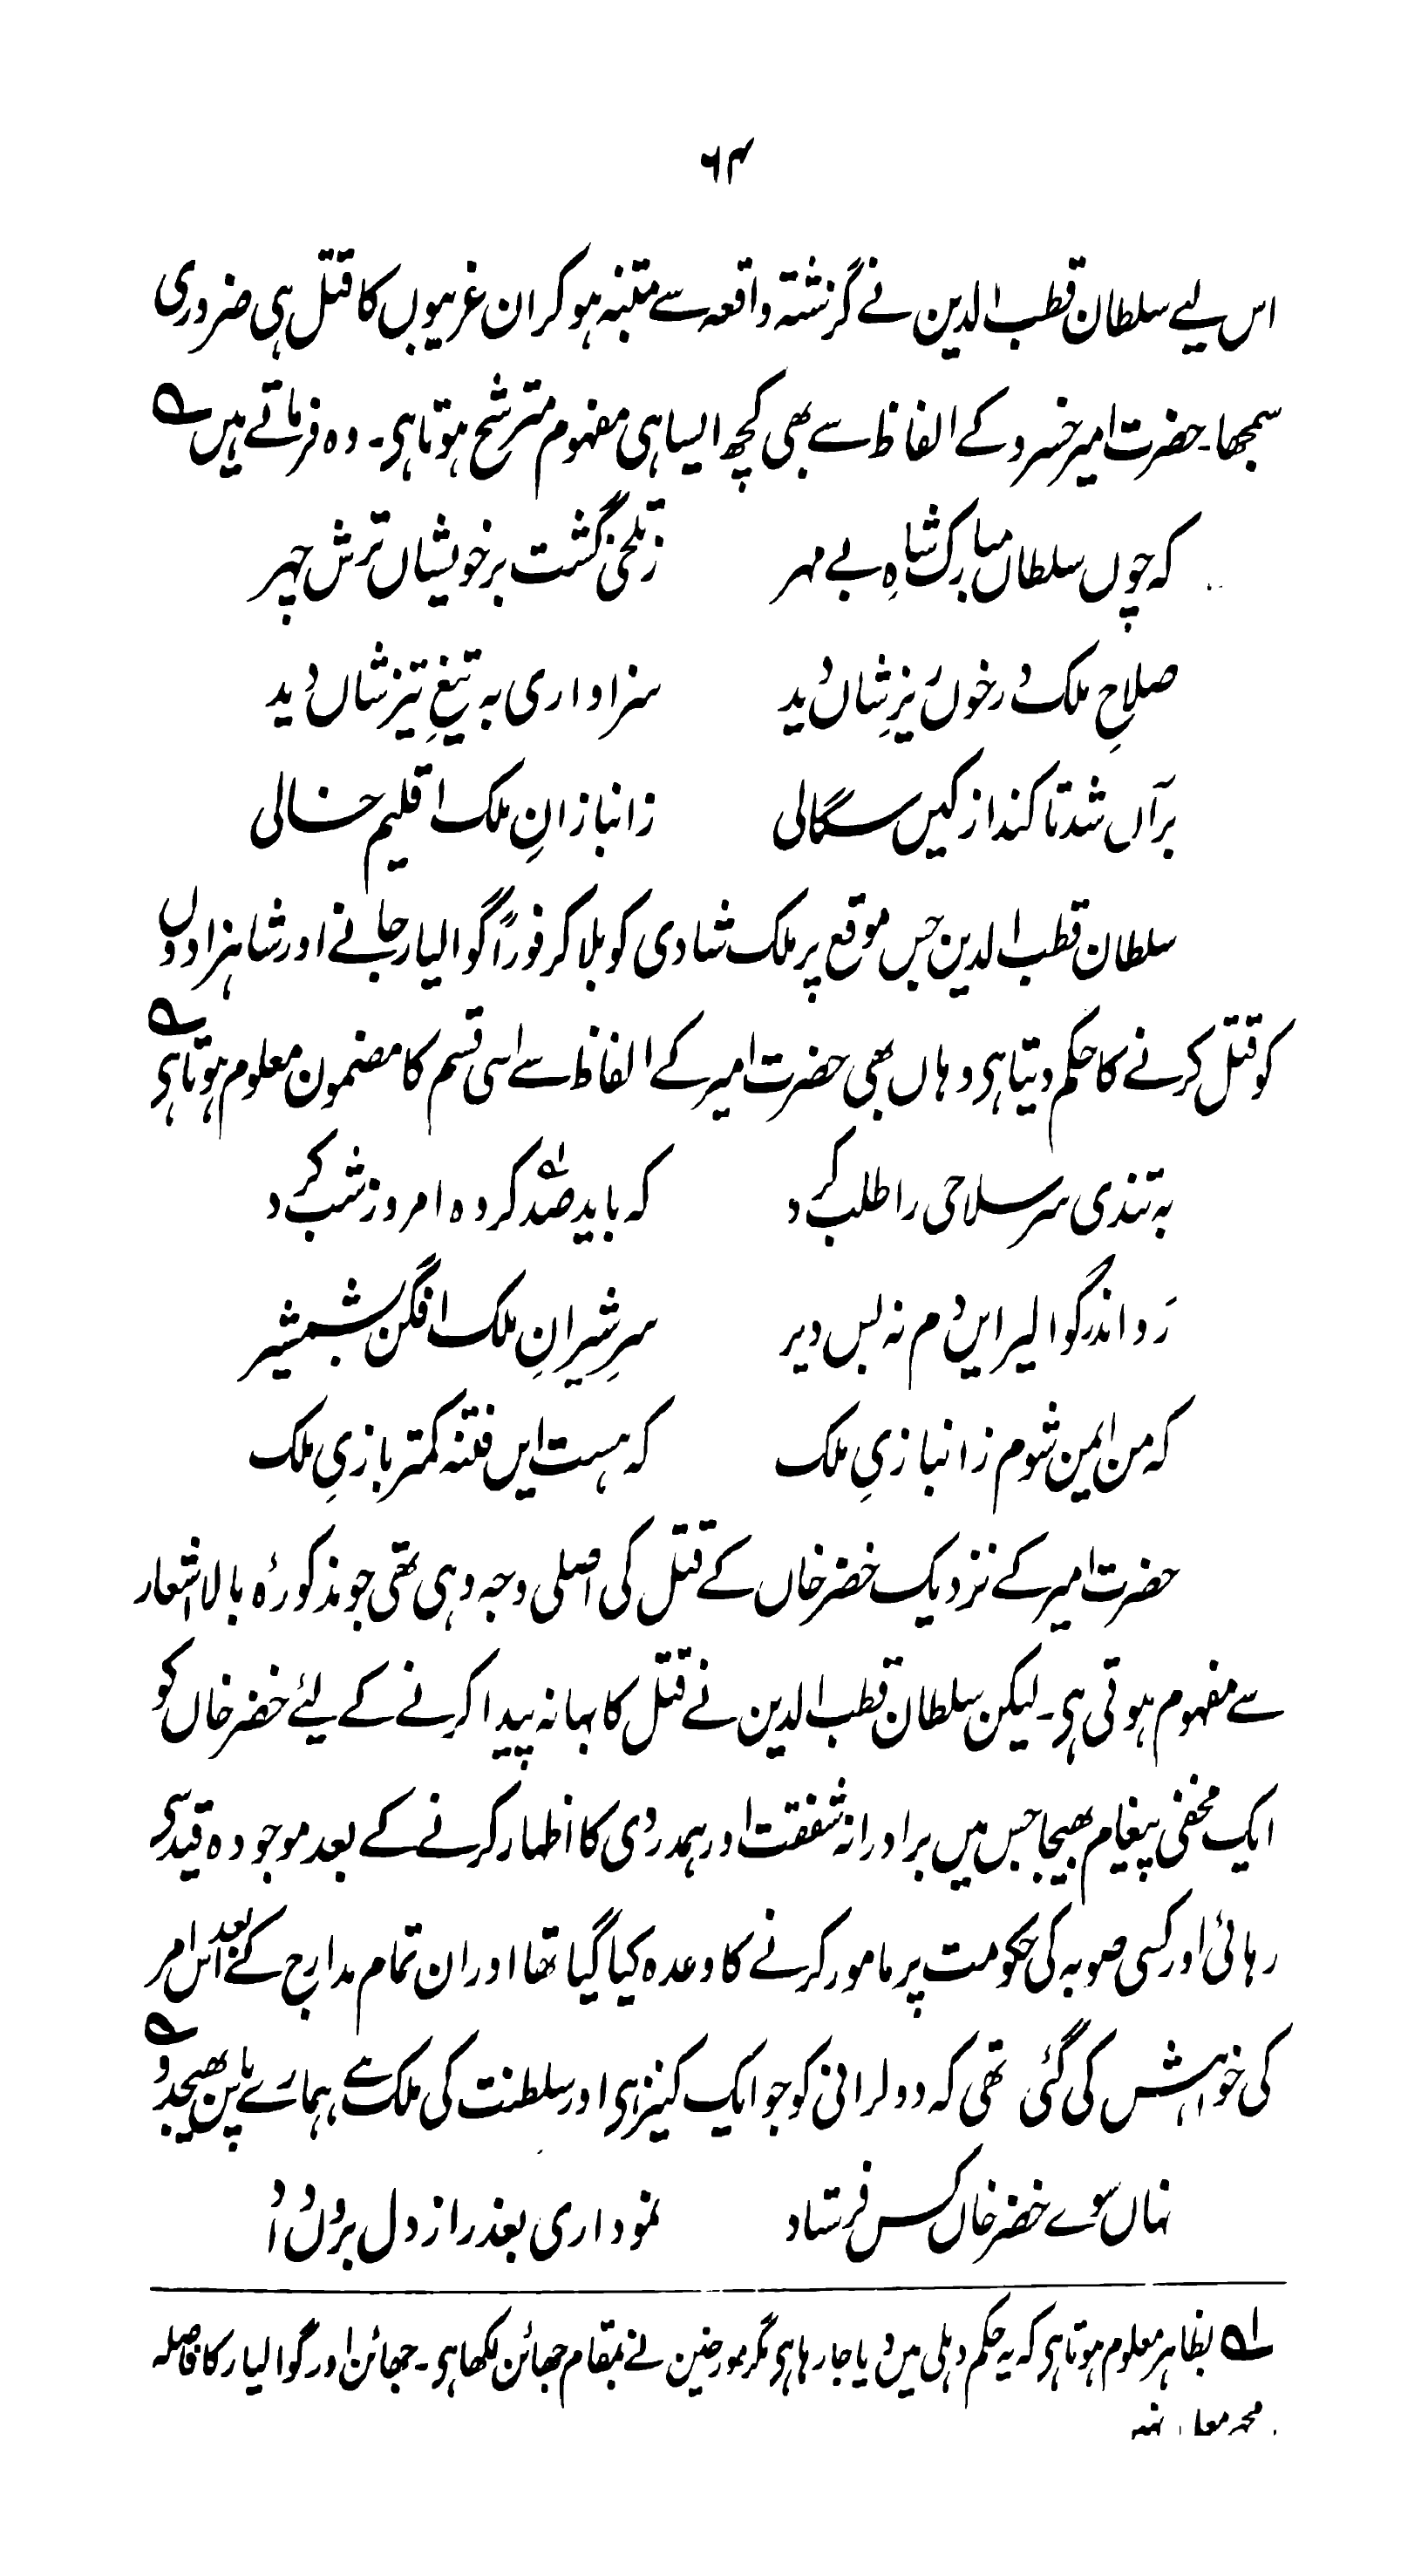 ۶۴
اس لیے سلطان قطب الدین نے گزشتہ واقعہ سے متنبہ ہو کر ان غریبوں کا قتل ہی ضروری
سمجھا۔ حضرت امیر خسرو کے الفاظ سے بھی کچھ ایسا ہی مفہوم مترشح ہوتا ہی۔ وہ فرماتے ہیں
کہ چوں سلطاں مبارک شاہِ بے مہر زتلخی گشت بر خویشاں ترش چہر
صلاحِ ملک در خوں ریزِ شاں دید سزاواری بہ تیغِ تیز شاں دید
برآں شد تا کند از کیں سگالی ز انبازانِ ملک اقلیم خالی
سلطان قطب الدین جس موقع پر ملک شادی کو بلا کر فوراً گوالیار جانے اور شاہزادوں
کو قتل کرنے کا حکم دیتا ہی وہاں بھی حضرت امیر کے الفاظ سے اسی قسم کا مضمون معلوم ہوتا ہی
بہ تندی سر سلاحی را طلب کرد کہ باید صد کروہ امروز شب کرد
رَو اندر گوالیر ایں دم نہ بس دیر سرِ شیرانِ ملک افگن بشمشیر
کہ من ایمن شوم ز انبازیِ ملک کہ ہست ایں فتنہ کمتر بازیِ ملک
حضرت امیر کے نزدیک خضر خاں کے قتل کی اصلی وجہ وہی تھی جو مذکورۂ بالا اشعار
سے مفہوم ہوتی ہی۔ لیکن سلطان قطب الدین نے قتل کا بہانہ پیدا کرنے کے لیئے خضر خاں کو
ایک مخفی پیغام بھیجا جس میں برادرانہ شفقت اور ہمدردی کا اظہار کرنے کے بعد موجودہ قید سے
رہائی اور کسی صوبہ کی حکومت پر مامور کرنے کا وعدہ کیا گیا تھا اور ان تمام مدارج کے بعد اس امر
کی خواہش کی گئی تھی کہ دولرانی کو جو ایک کنیز ہی اور سلطنت کی ملک ہے ہمارے پاس بھیجدو
نہاں سوے خضر خاں کس فرستاد نموداری بعذر از دل بروں داد
لہ بظاہر معلوم ہوتا ہی کہ یہ حکم دہلی میں دیا جا رہا ہی مگر مورخین نے بمقام جھائن لکھا ہی۔ جھائن اور گوالیار کا فاصلہ